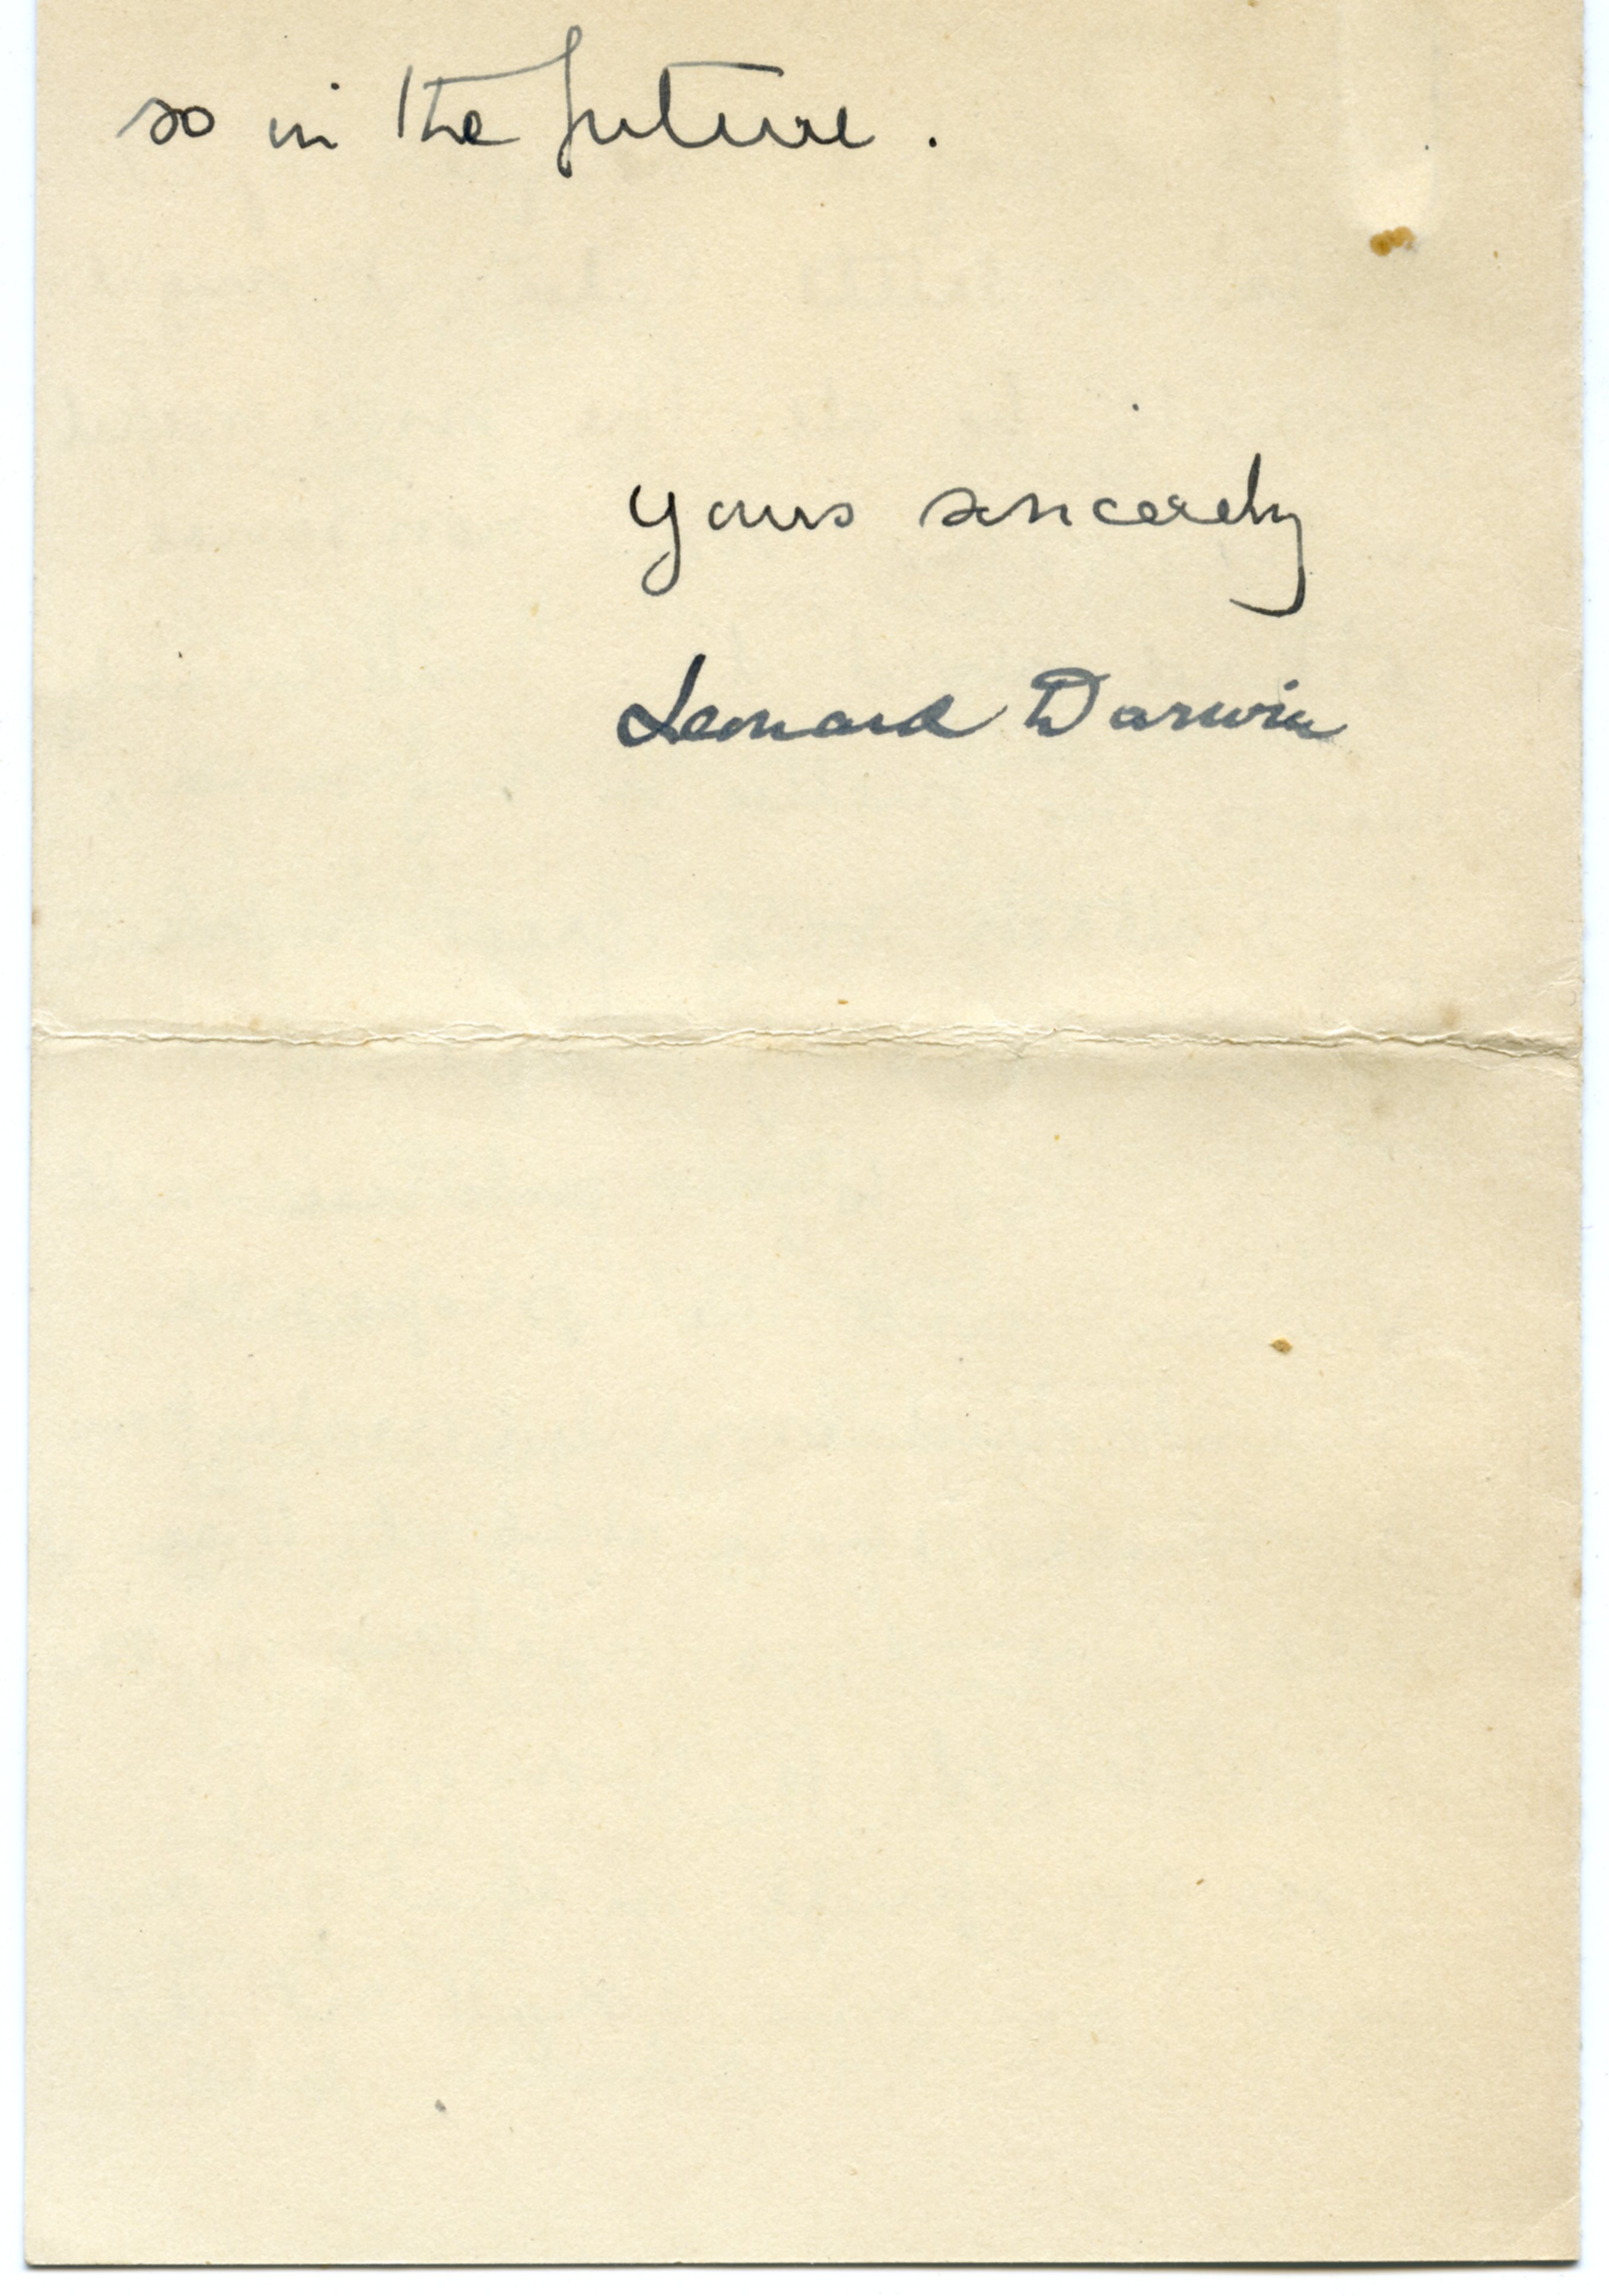 so in the future.
Yours sincerely
Leonard Darwin